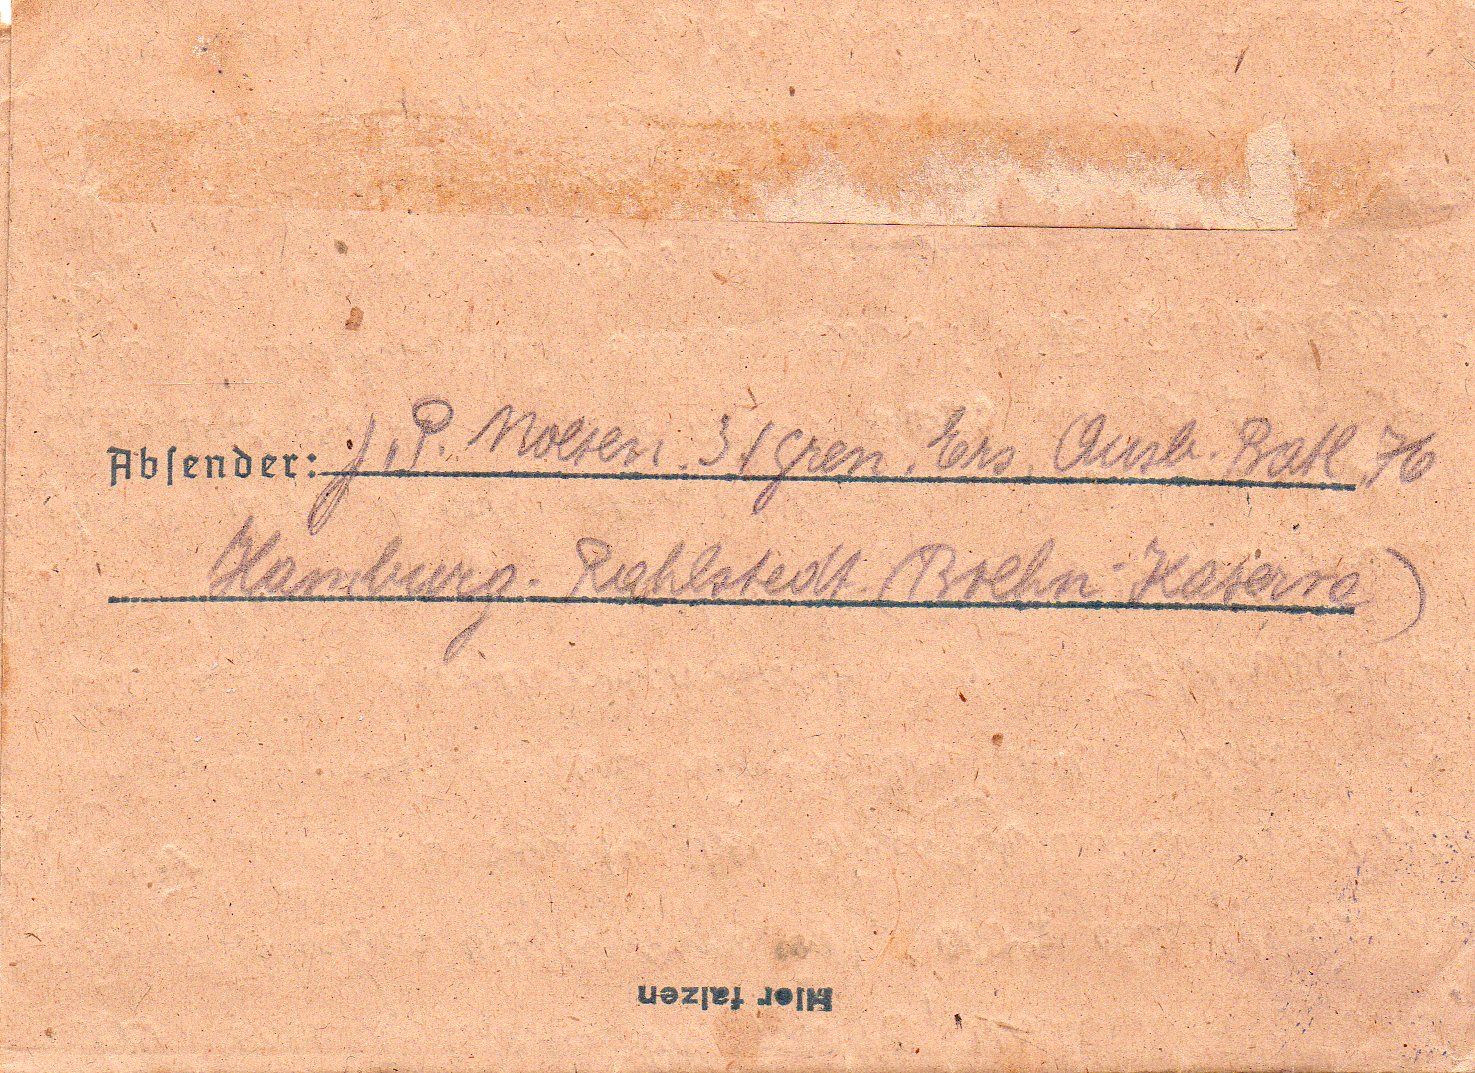 Absender: J. P. Nolsen. 3/Gren. Ers. Ausb. Batl. 76
Hamburg-Rahlstedt (Boehn-Kaserne)
Hier falzen